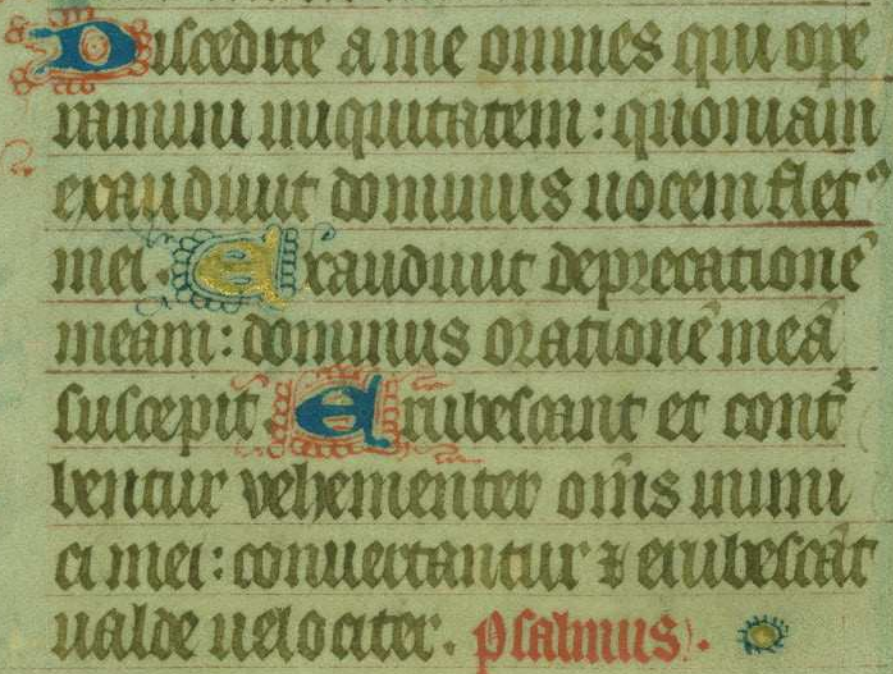 Discedite a me omnes qui ope
ramini iniquitatem: quoniam
exaudiuit dominus uocem flet᷒
mei. Exaudiuit deprecationē
meam: dominus orationē meā
suscepit. Erubescant et contr̄
bentur vehementer om̄s inimi
ci mei: conuertantur ⁊ erubescāt
ualde uelociter. psalmus.